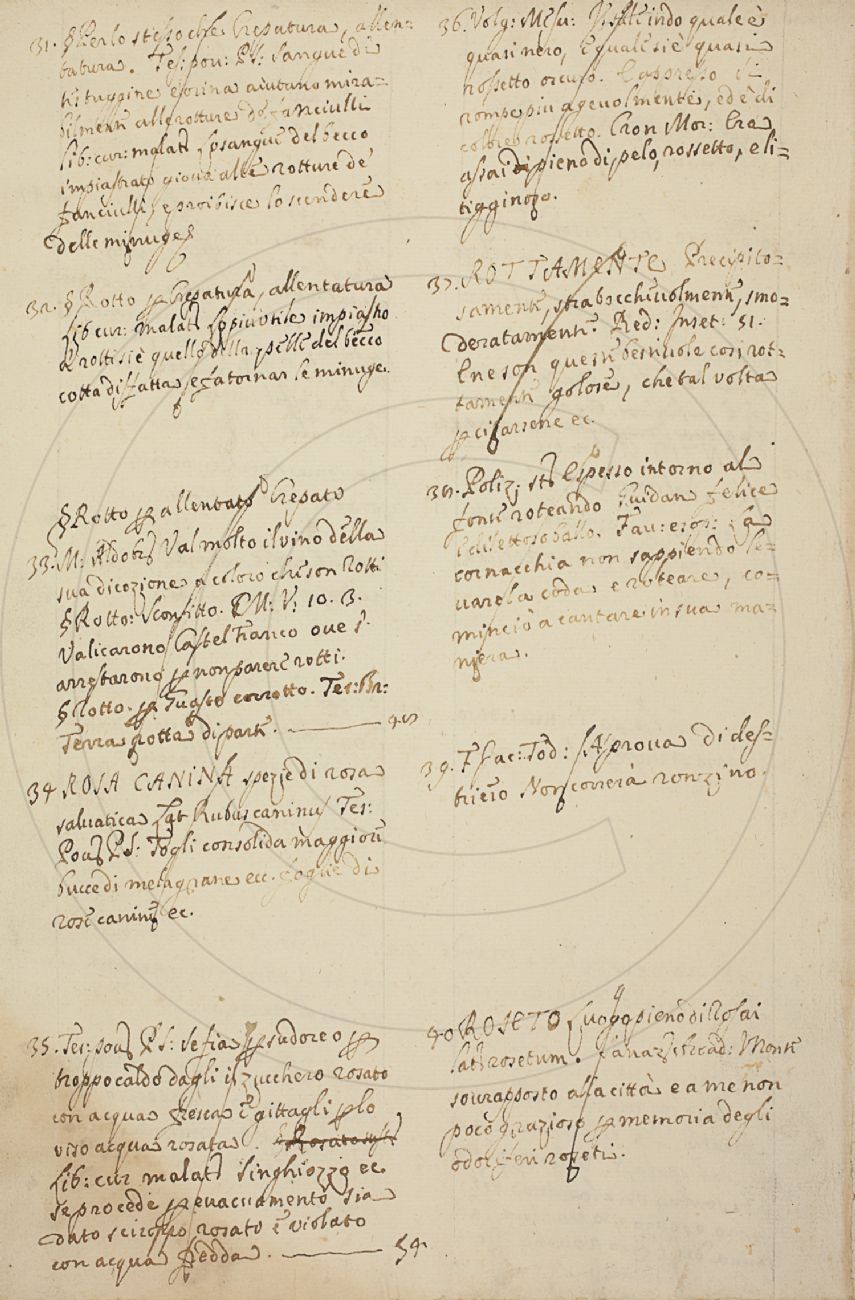 31. § Per lo stesso che Crepatura, allen=
tatura. Tes: pou: P.S: Sangue di
e orina aiutano mira=
bilmente alle rotture de fanciulli
Lib: cur: malatt Lo sangue del becco
impiastrato giova alle rotture de
fanciulli, e proibisce lo scendere
delle minuge
32. § Rotto p Crepatura, allentatura
Lib cur: malatt Lo piu utile impiastro
a rotti si è quello della pelle del becco
cotta disfatta, e fa tornar le minuge.
§ Rotto p allentato, Crepato
33. M: Aldobr Val molto il vino della
sua dicozione a coloro che son rotti
§ Rotto: Sconfitto. M: V: 10. 3.
Valicarono Castel Franco ove s'
arrestarono p non parere rotti.
§ Rotto. p Guasto corrotto. Tes: Br:
Terra rotta di parte.
34 ROSA CANINA spezie di rosa
salvatica Lat Rubus caninus Tes:
Pou P.S: Togli consolida maggiore
bucce di melagrane ecc. foglie di
rose canine ec.
35. Tes: pou P.S: Se fia p sudore o p
troppo caldo dagli il zucchero rosato
con acqua fresca E gittagli p lo
viso acqua rosata.
Lib: cur malatt Singhiozzo ec.
se procede p evacuamento sia
dato sciroppo rosato e violato
con acqua fredda. 54
36. Volg: Mesu: indo quale è
quasi nero, E quale si è quasi
rossetto oscuro. E appresso si
rompe piu agevolmente, ed è di
colore rossetto. Cron Mor: Era
assai pieno di pelo, rossetto, e li=
tigginoso.
37. ROTTAMENTE Precipito=
samente, strabocchevolmente, smo=
deratamente. Red: Inset: 51.
E ne son queste bestiuole così rot=
tamente golose, che tal volta
ec.
38. Poliz: st E spesso intorno al
fonte roteando Guidan felice
E dilettoso ballo. Fau: esop: La
cornacchia non sappiendo le=
vare la coda e roteare, co=
minciò a cantare in sua ma=
niera.
39. F Iac: Tod: A prova di des=
triero Non correrà ronzino.
40 ROSETO Luogo pieno di Rosai
Lat rosetum.
sourapposto alla città e a me non
poco grazioso p memoria degli
odoriferi roseti.